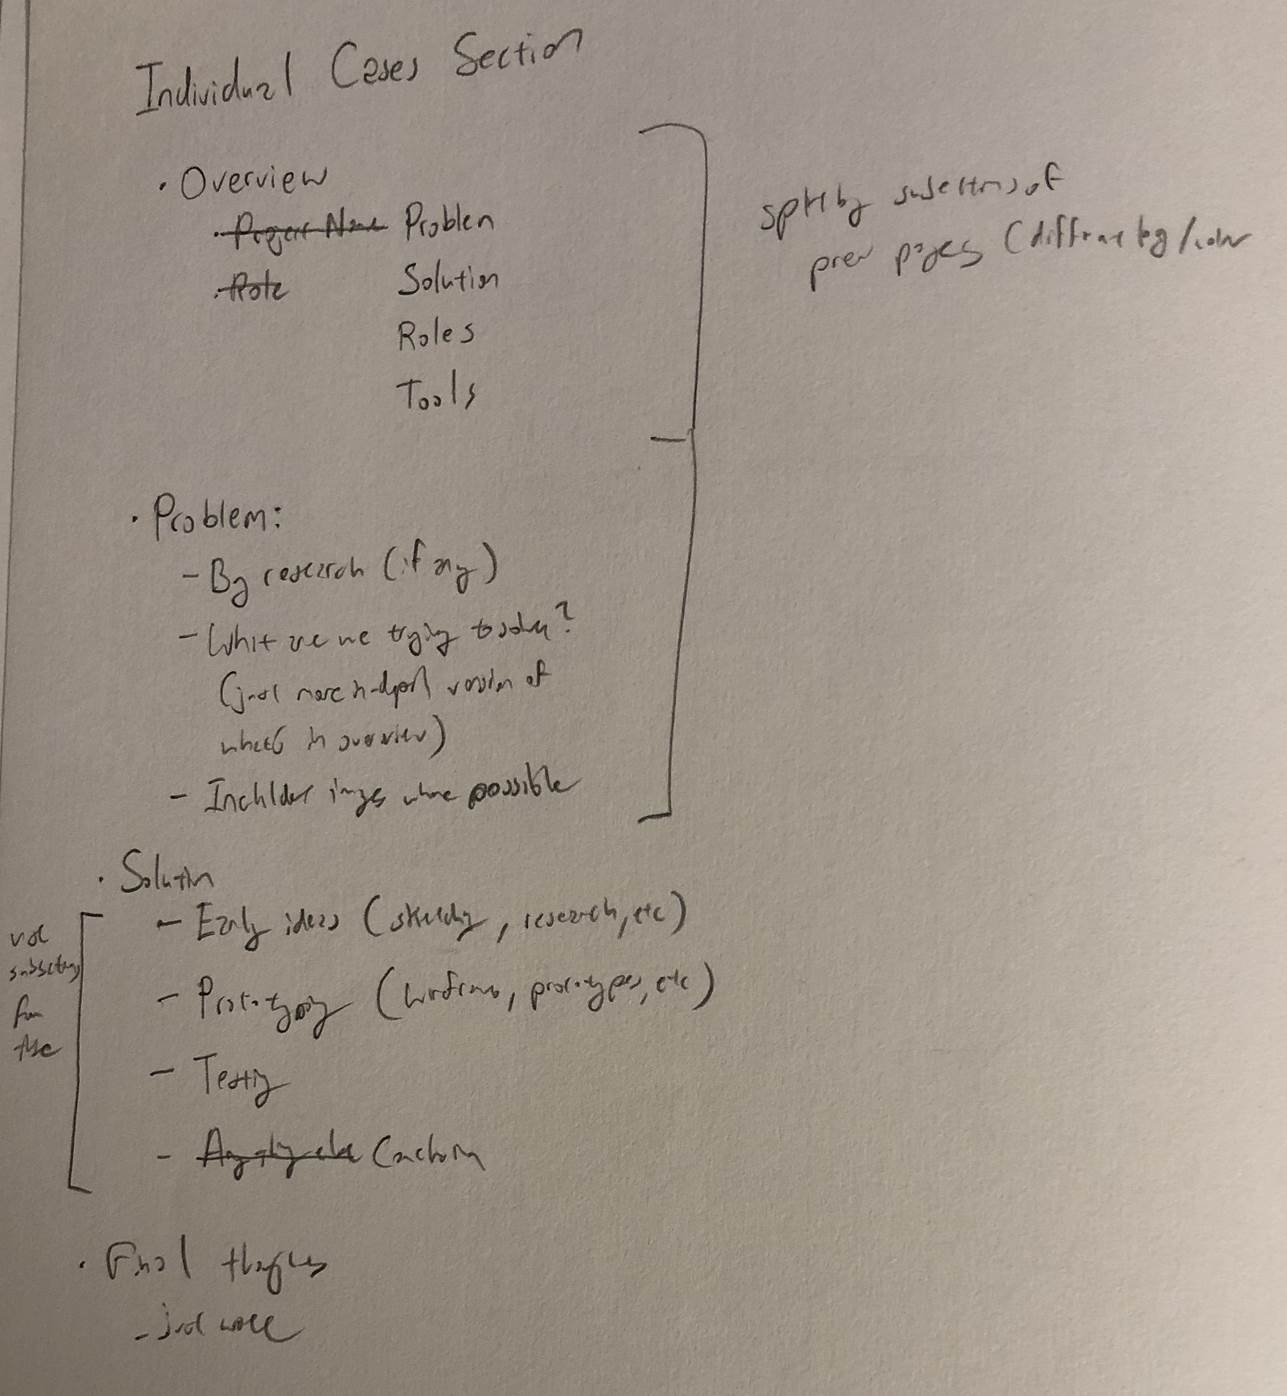 Individual Cases Section
· Overview
· Project Name Problem
· Role Solution
Roles
Tools
split by subsections of
prev pages (different bg/color
· Problem:
- By research (if any)
- What are we trying to solve?
(just more in-depth version of
what's in overview)
- Include images where possible
· Solution
- Early ideas (sketching, research, etc)
- Prototyping (wireframes, prototypes, etc)
- Testing
- Conclusion
use
subsections
for
these
· Final thoughts
- just